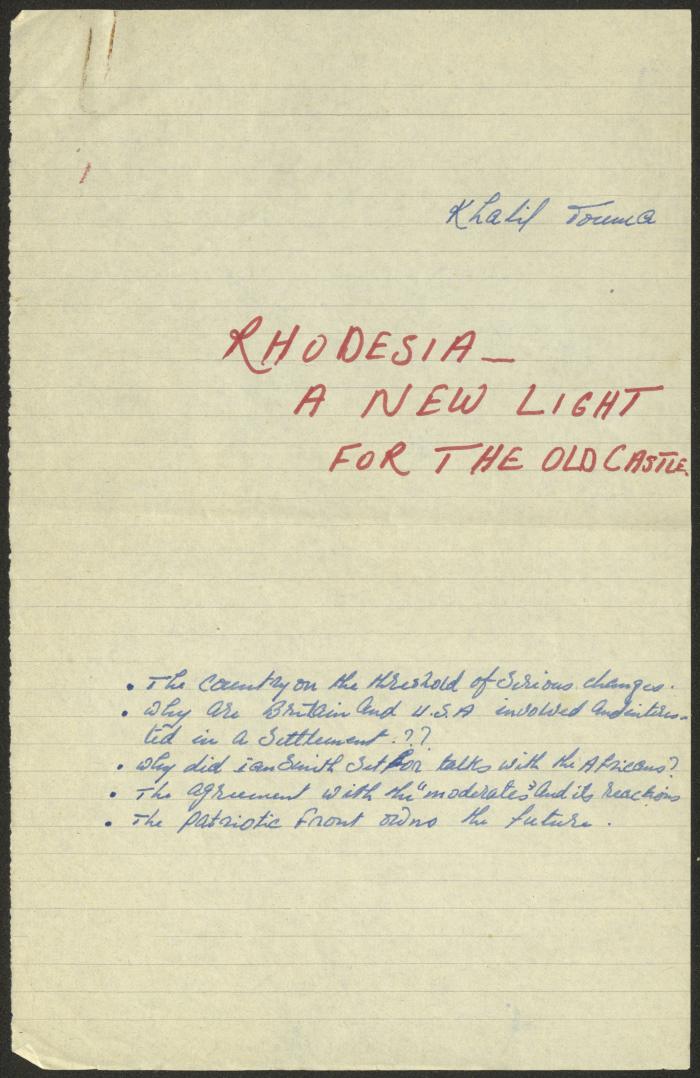 Khalil Touma
RHODESIA —
A NEW LIGHT
FOR THE OLD CASTLE.
• The country on the threshold of serious changes.
• Why are Britain and U.S.A involved and interes-
ted in a Settlement. ??
• Why did ian Smith Set for talks with the Africans?
• The agreement with the "moderates" and its reactions
• The patriotic Front owns the future.